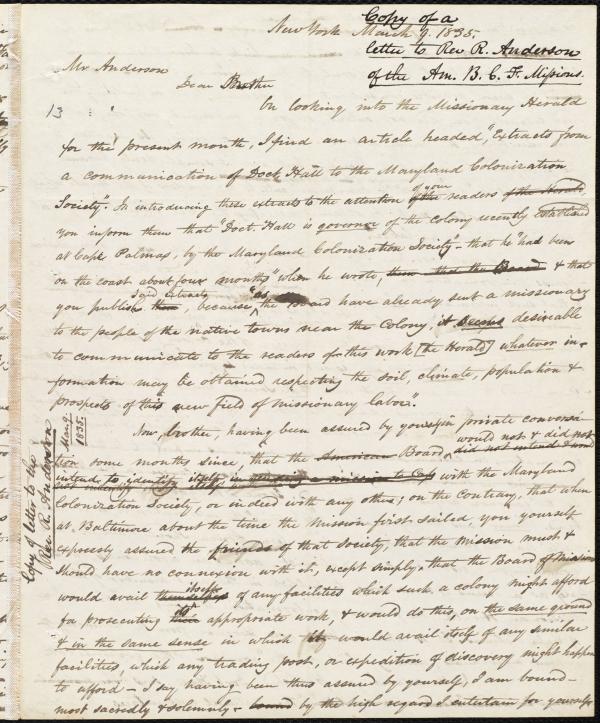 Copy of a
New York March 9. 1835.
letter to Rev R. Anderson
of the Am. B. C. F. Missions.
Mr Anderson
Dear Brother
13
On looking into the Missionary Herald
for the present month, I find an article headed, "Extracts from
a communication of Doct Hall to the Maryland Colonization
Society". In introducing these extracts to the attention of your readers of the Herald
you inform them that "Doct. Hall is governor of the Colony recently established
at Cape Palmas, by the Maryland Colonization Society" - that he "had been
on the coast about four months" when he wrote, & that
you publish said extracts, because, "as the Board have already sent a missionary
to the people of the native towns near the Colony, it seems desireable
to communicate to the readers of this work [the Herald] whatever in-
formation may be obtained respecting the soil, climate, population &
prospects of this new field of missionary labor".
Now, brother, having been assured by yourself in private conversa-
tion some months since, that the American Board would not & did not
intend to identify itself with the Maryland
Colonization Society, or indeed with any other; on the contrary, that when
at Baltimore about the time the mission first sailed, you yourself
expressly assured the friends of that Society, that the mission must &
should have no connexion with it, except simply, that the Board of Missions
would avail itself of any facilities which such a colony might afford
for prosecuting its appropriate work, & would do this, on the same ground
& in the same sense in which it would avail itself of any similar
facilities which any trading post, or expedition of discovery might happen
to afford - I say having been thus assured by yourself, I am bound -
most sacredly & solemnly - bound by the high regard I entertain for yourself
Copy of letter to the
Rev. R. Anderson
Mar. 9.
1835.